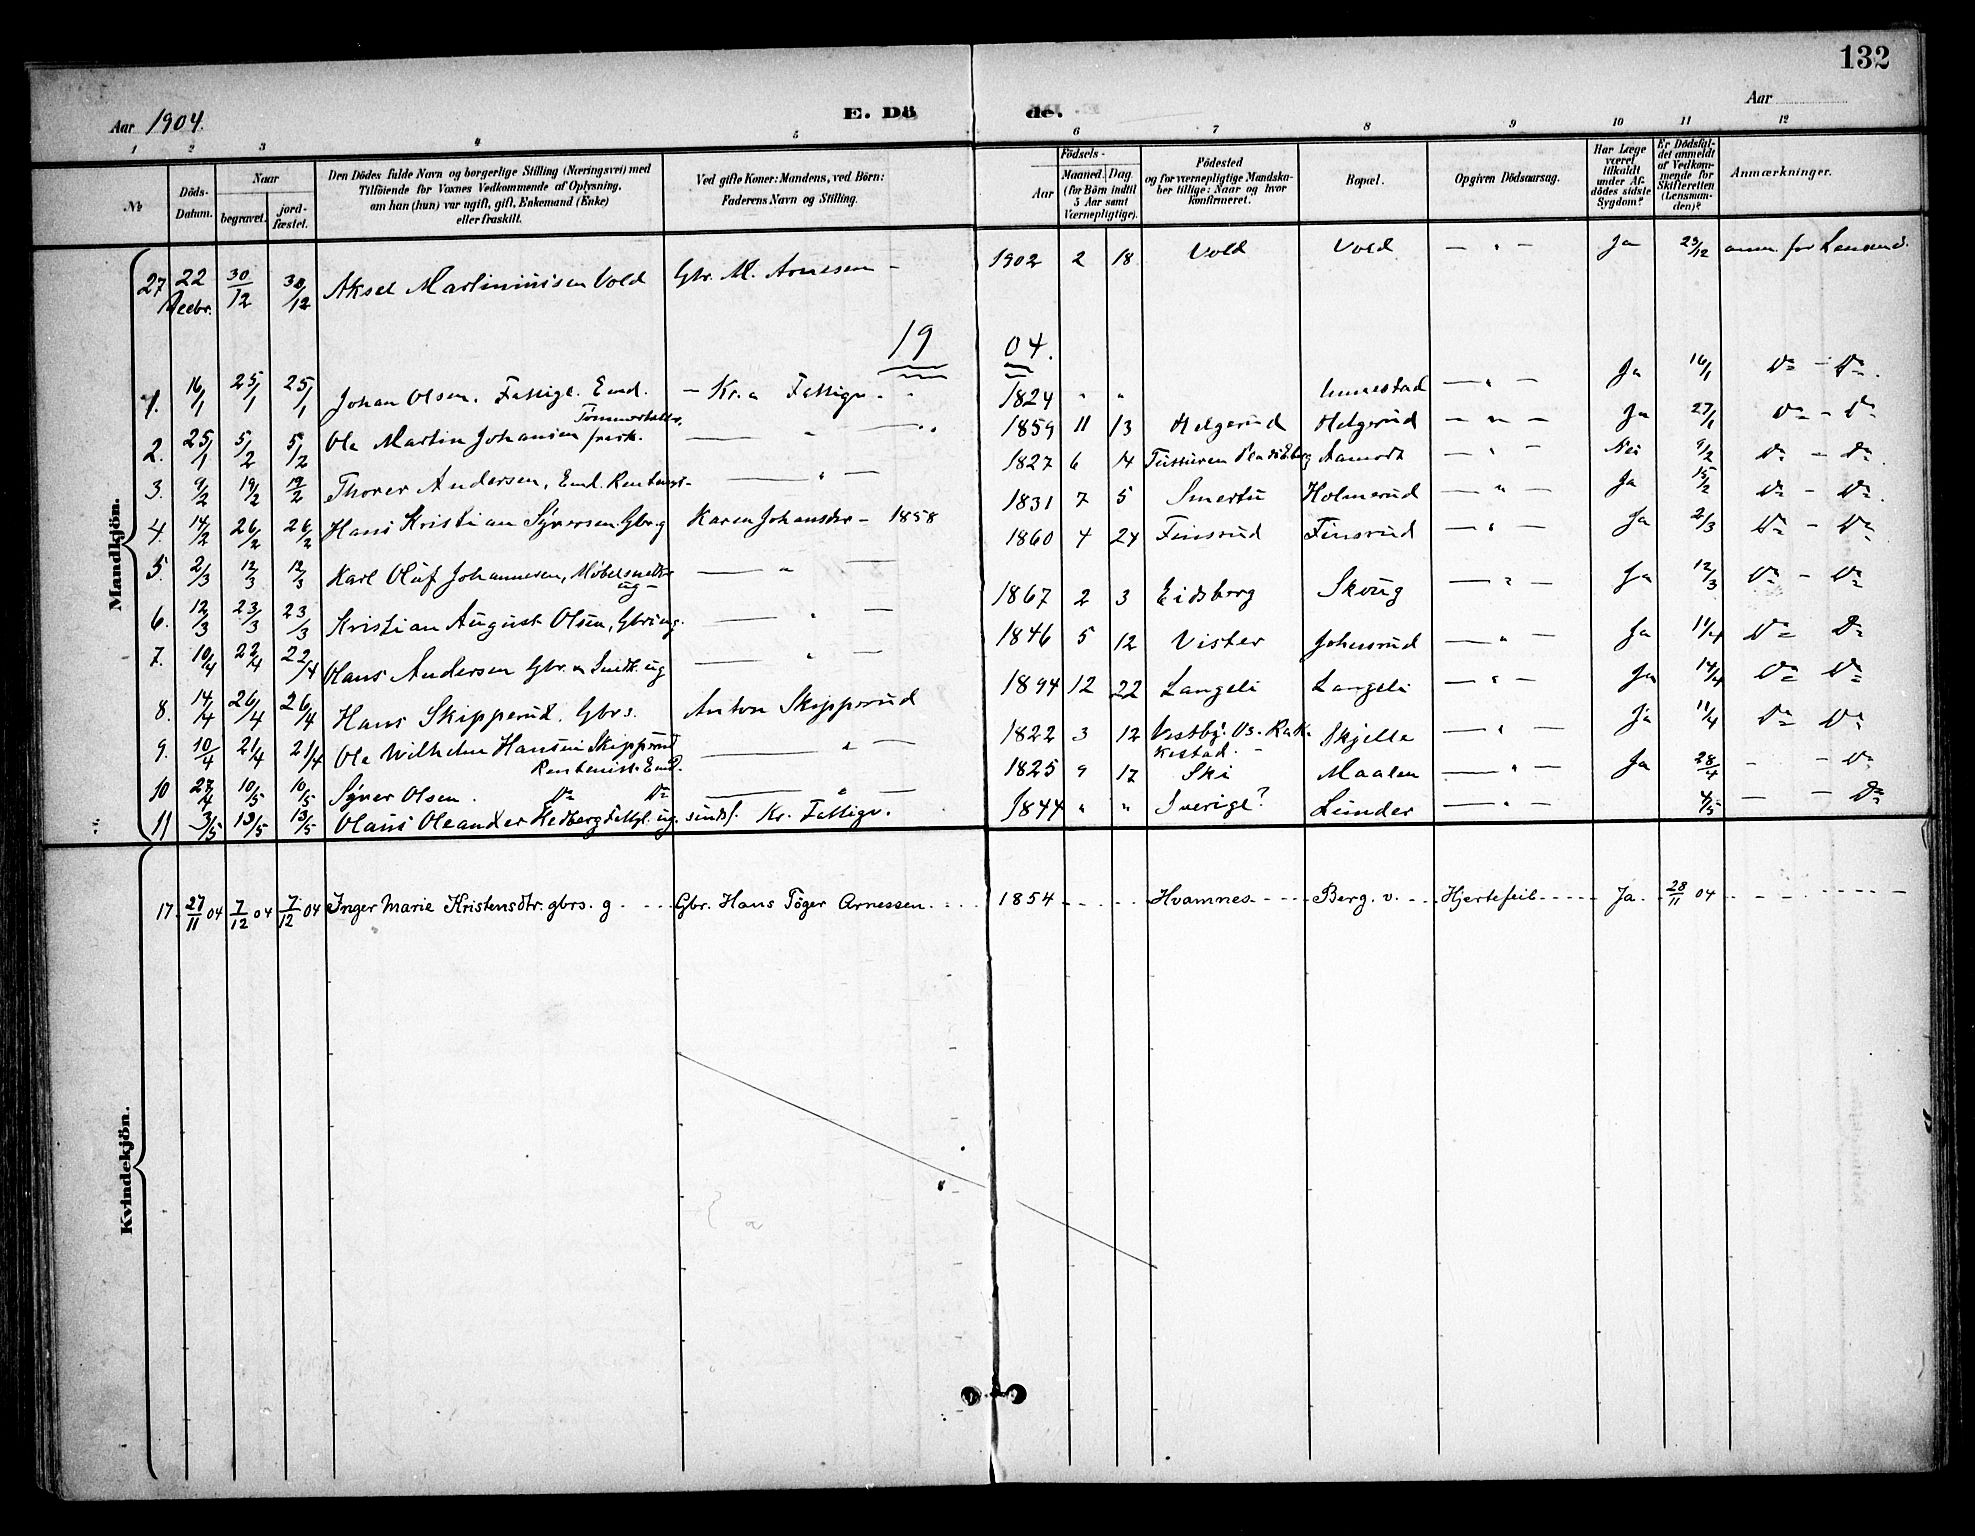 132
Aar 1904.
E. Dö
de.
Aar
1 2 3 4 5 6 7 8 9 10 11 12
№
Döds-Datum.
Naar
begravet.
jord-fæstet.
Den Dödes fulde Navn og borgerlige Stilling (Næringsvei) med Tilföiende for Voxnes Vedkommende af Oplysning, om han (hun) var ugift, gift, Enkemand (Enke) eller fraskilt.
Ved gifte Koner: Mandens, ved Börn: Faderens Navn og Stilling.
Födsels-
Aar
Maaned. Dag. (for Börn indtil 5 Aar samt Værnepligtige).
Födested og for værnepligtige Mandskaber tillige: Naar og hvor konfirmeret.
Bopæl.
Opgiven Dödsaarsag.
Har Læge været tilkaldt under Afdödes sidste Sygdom?
Er Dödsfaldet anmeldt af Vedkommende for Skifteretten (Lensmanden)?
Anmærkninger.
Mandkjön.
27 22 Decbr. 30/12 30/12 Aksel Martiniusen Vold Gbr. M. Arnesen - 1902 2 18 Vold Vold — " — Ja 23/12 anm. for Lensmd.
19 04.
1. 16/1 25/1 25/1 Johan Olsen, Fattigl. Emd. - Kr. a Fattigv. " 1824 " " Ja 16/1 Do - Do.
2. 25/1 5/2 5/2 Ole Martin Johansen — " — 1859 11 13 Helgerud Helgerud — " — Ja 27/1 Do - Do
3. 9/2 19/2 19/2 Thorer Andersen, Emd. — " — 1827 6 14 Aamodt — " — Nei 9/2 Do - Do.
4. 14/2 26/2 26/2 Hans Kristian Syversen Gbr. g Karen Johansdtr - 1858 1831 7 5 Smertu Holmerud — " — Ja 15/2 Do - Do.
5. 2/3 12/3 12/3 Karl Oluf Johannesen, Møbelsnekker ug - — " — 1860 4 24 Finsrud Finsrud — " — Ja 2/3 Do - Do
6. 12/3 23/3 23/3 Kristian August Olsen, — " — 1867 2 3 Eidsberg Skoug — " — Ja 12/3 Do - Do
7. 10/4 22/4 22/4 Hans Andersen Gbr. ug — " — 1846 5 12 Vister Johnsrud — " — Ja 11/4 Do Do
8. 14/4 26/4 26/4 Hans Skipperud. Gbrs. Anton Skipperud 1894 12 22 Langeli Langeli — " — Ja 14/4 Do Do
9. 10/4 21/4 21/4 Ole Wilhelm Hansen Skipperud Rentenist. Emd. — " — 1822 3 12 Vestby. Skjelle — " — Ja 11/4 Do Do
10 27/4 10/5 10/5 Syver Olsen. Do Do — " — 1825 9 17 Ski Maalen — " — Ja 28/4 - - Do
11 3/5 13/5 13/5 Olaus Oleander Hedberg Fattigl. ug. sindsf. Kr. Fattigv. 1844 " " Sverige? Lunder — " — 4/5 — - Do
Kvindekjön.
17. 27/11 04 7/12 04 7/12 04 Inger Marie Kristensdtr. gbrs. g - - - Gbr. Hans Töger Arnessen. - - - 1854 - - - - Hvamnes - - - Berg. v. - - - Hjertefeil - - - Ja. - 28/11 04 - - - -